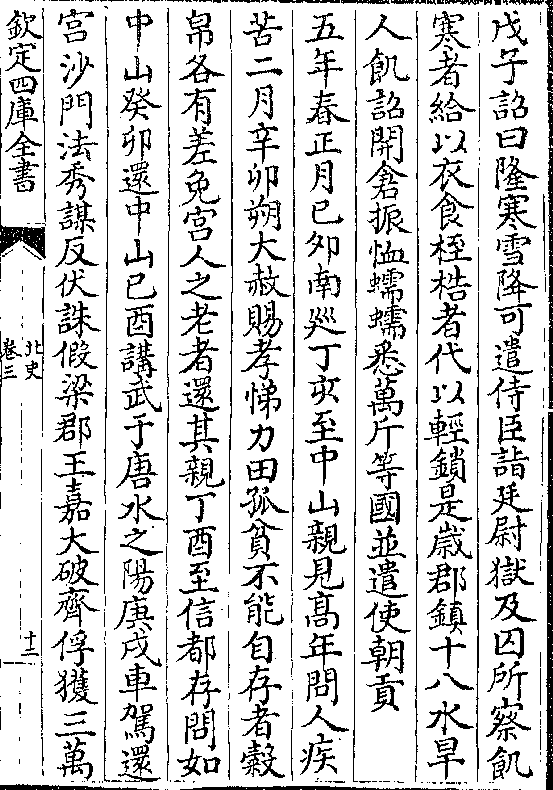 戊子詔曰隆寒雪降可遣侍臣詣廷尉獄及囚所察飢
寒者給以衣食桎梏者代以輕鎖是歲郡鎮十八水旱
人飢詔開倉振恤蠕蠕悉萬斤等國並遣使朝貢
五年春正月己夘南廵丁亥至中山親見髙年問人疾
苦二月辛卯朔大赦賜孝悌力田孤貧不能自存者穀
帛各有差免宮人之老者還其親丁酉至信都存問如
中山癸卯還中山己酉講武于唐水之陽庚戌車駕還
宮沙門法秀謀反伏誅假梁郡王嘉大破齊俘獲三萬
欽定四庫全書
北史
卷三
十二